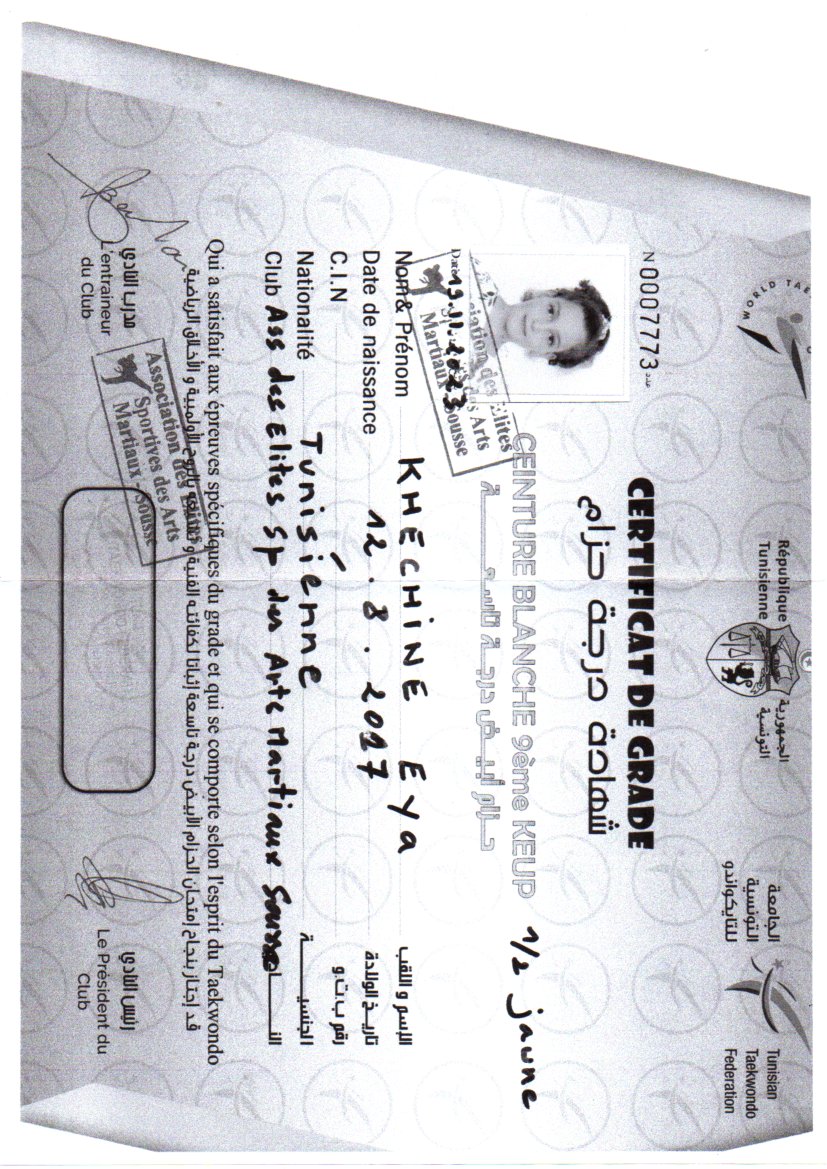 WORLD TAE
République
Tunisienne
الجمهورية
التونسية
الجامعة
التونسية
للتايكواندو
Tunisian
Taekwondo
Federation
N 0007773 عدد
CERTIFICAT DE GRADE
شهادة درجة حزام
CEINTURE BLANCHE 9ème KEUP 1/2 jaune
حزام أبيض درجة تاسعة
19.11.2023
Association des Elites
Sportives des Arts
Martiaux - Sousse
Nom & Prénom KHECHINE EYA الإسم و اللقب
Date de naissance 12.8.2017 تاريخ الولادة
C.I.N رقم ب.ت.و
Nationalité Tunisiénne الجنسية
Club Ass des Elites Sp des Arts Martiaux Sousse
Qui a satisfait aux épreuves spécifiques du grade et qui se comporte selon l'esprit du Taekwondo
قد إجتاز بنجاح إمتحان الحزام الأبيض درجة تاسعة إثباتا لكفائته الفنية و الأخلاق الرياضية
مدرب النادي
L'entraineur
du Club
Association des Elites
Sportives des Arts
Martiaux - Sousse
رئيس النادي
Le Président du
Club